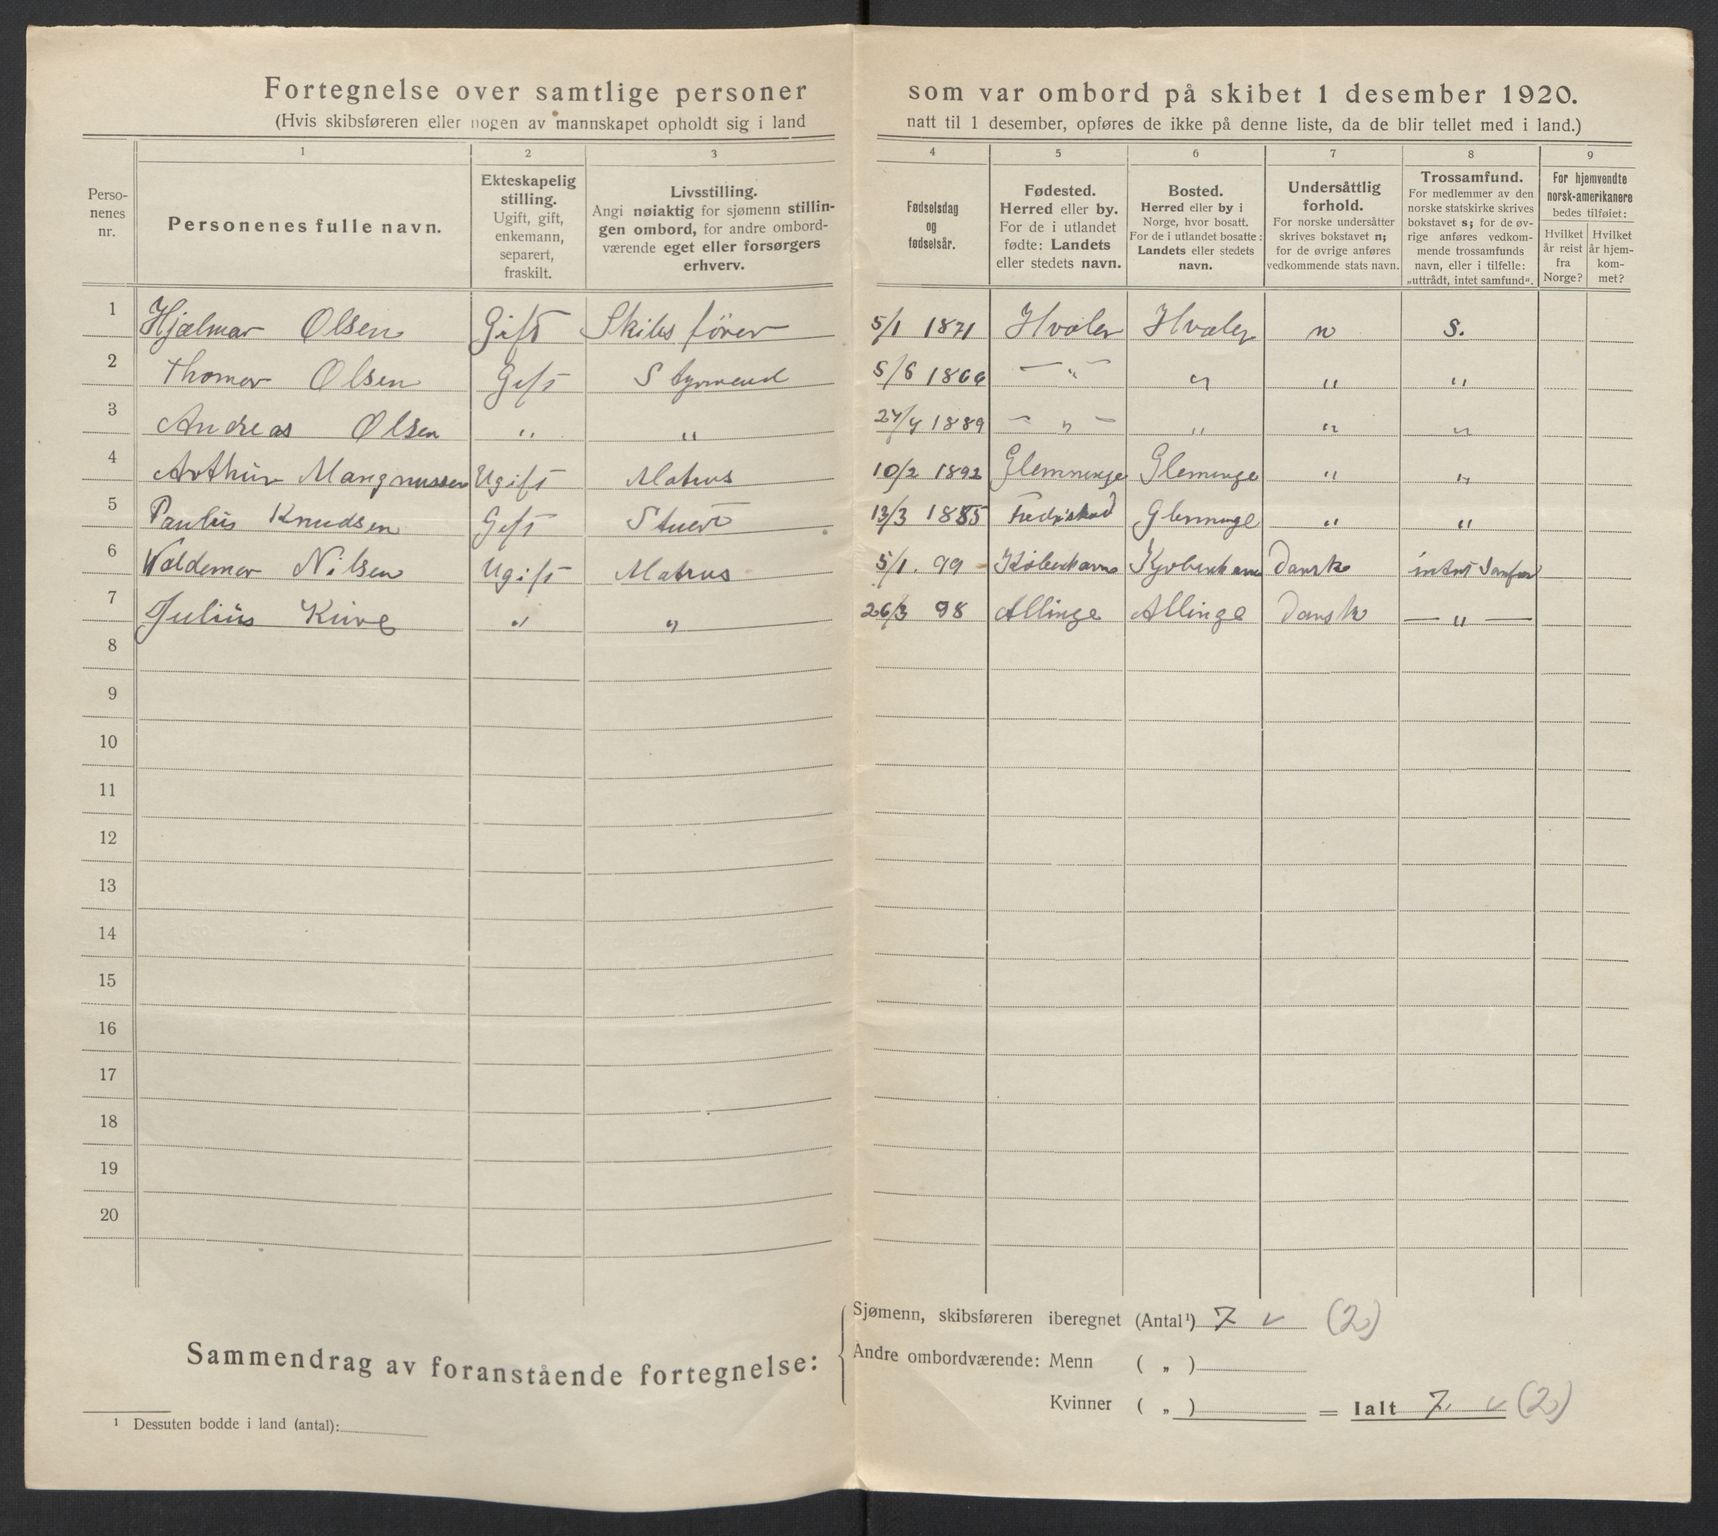 Fortegnelse over samtlige personer som var ombord på skibet 1 desember 1920.
(Hvis skibsføreren eller nogen av mannskapet opholdt sig i land natt til 1 desember, opføres de ikke på denne liste, da de blir tellet med i land.)
1 2 3 4 5 6 7 8 9
Personenes nr.
Personenes fulle navn.
Ekteskapelig stilling. Ugift, gift, enkemann, separert, fraskilt.
Livsstilling. Angi nøiaktig for sjømenn stillingen ombord, for andre ombordværende eget eller forsørgers erhverv.
Fødselsdag og fødselsår.
Fødested. Herred eller by. For de i utlandet fødte: Landets eller stedets navn.
Bosted. Herred eller by i Norge, hvor bosatt. For de i utlandet bosatte: Landets eller stedets navn.
Undersåttlig forhold. For norske undersåtter skrives bokstavet n; for de øvrige anføres vedkommende stats navn.
Trossamfund. For medlemmer av den norske statskirke skrives bokstavet s; for de øvrige anføres vedkommende trossamfunds navn, eller i tilfelle: „uttrådt, intet samfund“.
For hjemvendte norsk-amerikanere bedes tilføiet:
Hvilket år reist fra Norge?
Hvilket år hjemkommet?
1 Hjælmar Olsen Gift Skibsfører 5/1 1871 Hvaler Hvaler n s.
2 Thomar Olsen Gift Styrmend 5/6 1866 — „ — „ „ „
3 Andreas Olsen „ „ 27/4 1889 — „ — „ „ „
4 Arthur Mangnussen Ugift Matrus 10/2 1892 Glemminge Gleminge „ „
5 Paulus Knudsen Gift Stuert 13/3 1885 Fredrikstad Glemmige „ „
6 Valdemar Nilsen Ugift Matrus 5/1. 99 Köbenhavns Kjøbenhavn Dansk intet Samfun
7 Julius Kure „ „ 26/3 98 Allinge Allinge Dansk — „ —
8
9
10
11
12
13
14
15
16
17
18
19
20
Sammendrag av foranstående fortegnelse:
Sjømenn, skibsføreren iberegnet (Antal¹) 7 v (2)
Andre ombordværende: Menn ( „ )
Kvinner ( „ ) = Ialt 7. v (2)
¹ Dessuten bodde i land (antal):